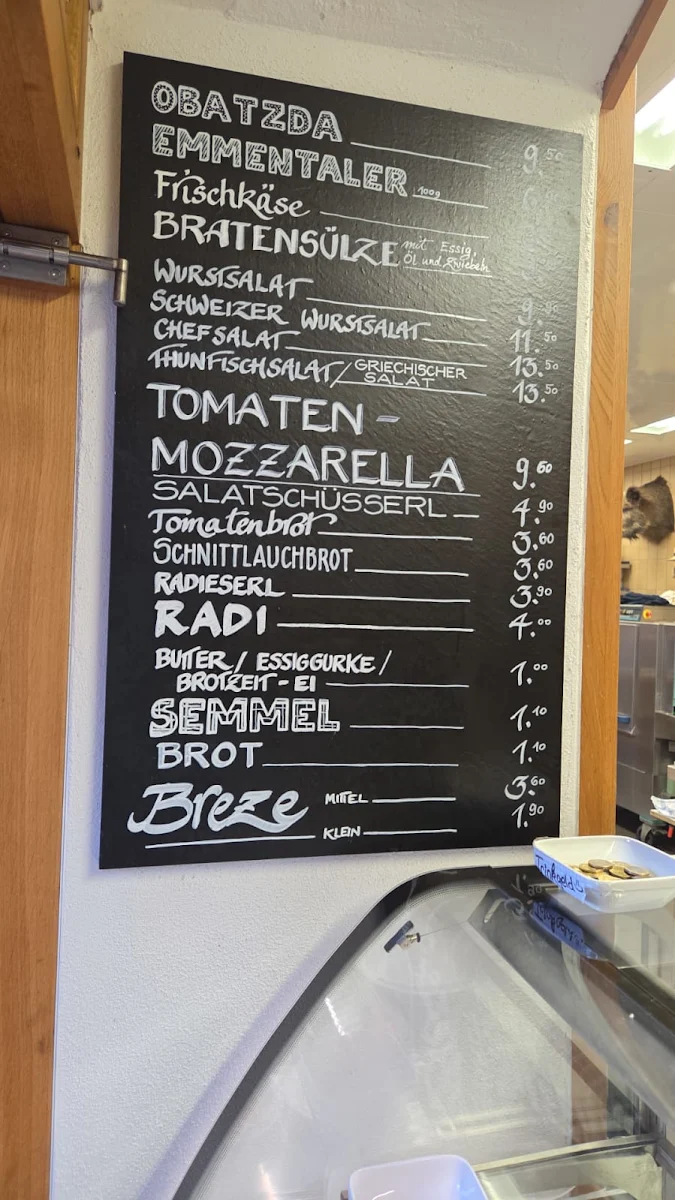 OBATZDA 9.50
EMMENTALER 100g
Frischkäse
BRATENSÜLZE mit Essig,
Öl und Zwiebeln
WURSTSALAT 9.90
SCHWEIZER WURSTSALAT 11.50
CHEFSALAT 13.50
THUNFISCHSALAT/GRIECHISCHER
SALAT 13.50
TOMATEN-
MOZZARELLA 9.60
SALATSCHÜSSERL 4.90
Tomatenbrot 3.60
SCHNITTLAUCHBROT 3.60
RADIESERL 3.90
RADI 4.00
BUTTER/ ESSIGGURKE/
BROTZEIT-EI 1.00
SEMMEL 1.10
BROT 1.10
Breze MITTEL 3.60
KLEIN 1.90
Trinkgeld